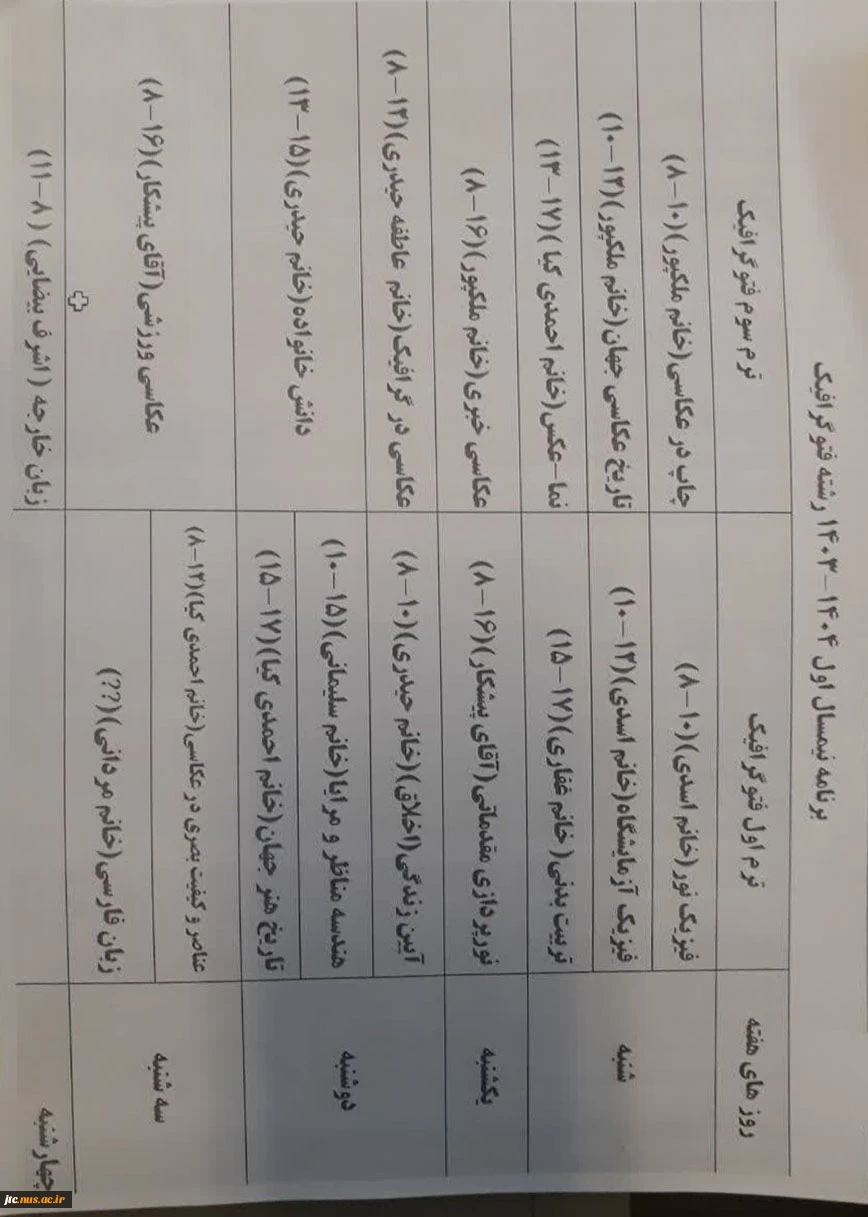 برنامه نیمسال اول ۱۴۰۴-۱۴۰۳ رشته فتوگرافیک
روز های هفته
ترم اول فتوگرافیک
ترم سوم فتوگرافیک
شنبه
فیزیک نور(خانم اسدی)(۱۰-۸)
چاپ در عکاسی(خانم ملکپور)(۱۰-۸)
فیزیک آزمایشگاه(خانم اسدی)(۱۲-۱۰)
تاریخ عکاسی جهان(خانم ملکپور)(۱۲-۱۰)
تربیت بدنی(خانم غفاری)(۱۷-۱۵)
نما-عکس(خانم احمدی کیا)(۱۷-۱۳)
یکشنبه
نورپردازی مقدماتی(آقای پیشکار)(۱۶-۸)
عکاسی خبری(خانم ملکپور)(۱۶-۸)
دوشنبه
آیین زندگی(اخلاق)(خانم حیدری)(۱۰-۸)
عکاسی در گرافیک(خانم عاطفه حیدری)(۱۲-۸)
هندسه مناظر و مرایا(خانم سلیمانی)(۱۵-۱۰)
دانش خانواده(خانم حیدری)(۱۵-۱۳)
تاریخ هنر جهان(خانم احمدی کیا)(۱۷-۱۵)
سه شنبه
عناصر و کیفیت بصری در عکاسی(خانم احمدی کیا)(۱۲-۸)
عکاسی ورزشی(آقای پیشکار)(۱۶-۸)
زبان فارسی(خانم مردانی)(؟؟)
چهارشنبه
زبان خارجه (اشرف بیضایی) (۸-۱۱)
jtc.nus.ac.ir